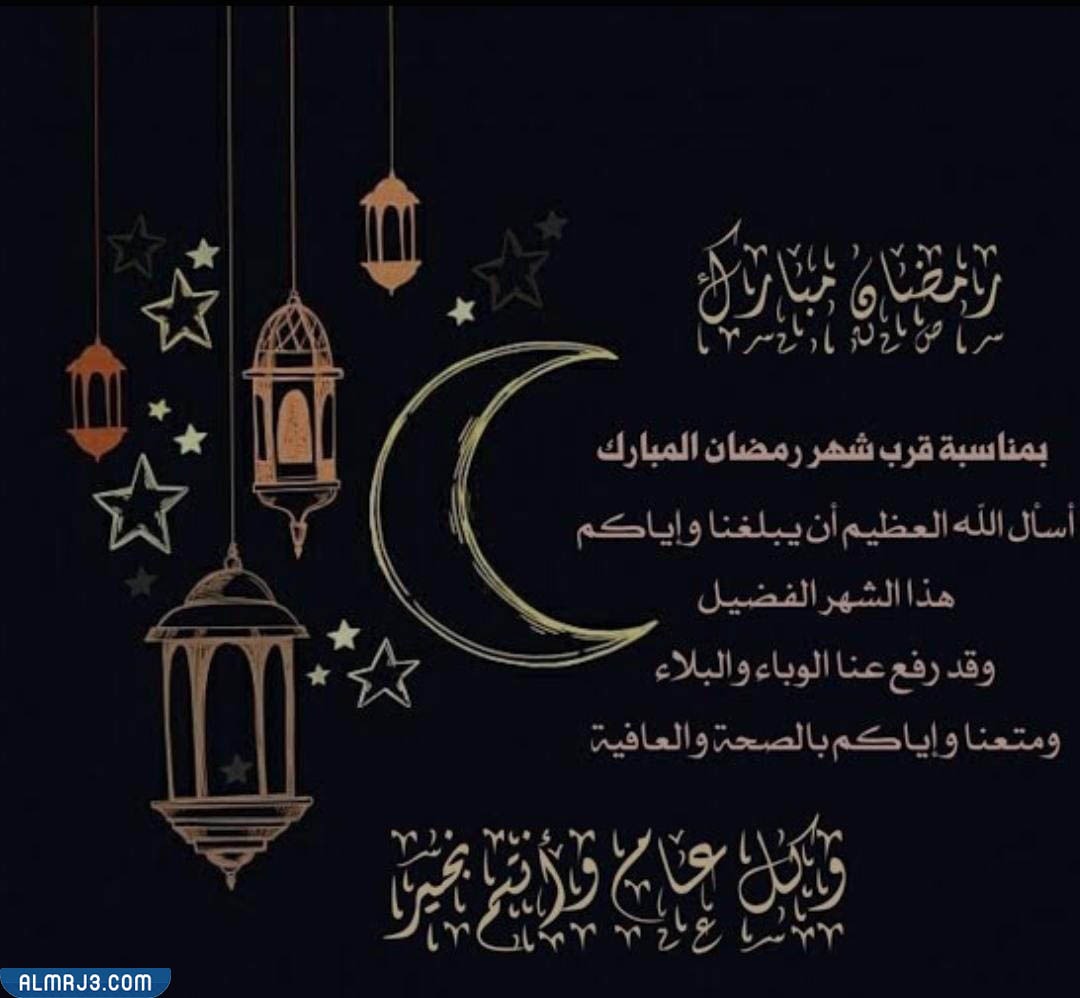 رمضان مبارك
بمناسبة قرب شهر رمضان المبارك
أسأل الله العظيم أن يبلغنا وإياكم
هذا الشهر الفضيل
وقد رفع عنا الوباء والبلاء
ومتعنا وإياكم بالصحة والعافية
وكل عام وأنتم بخير
ALMRJ3.COM